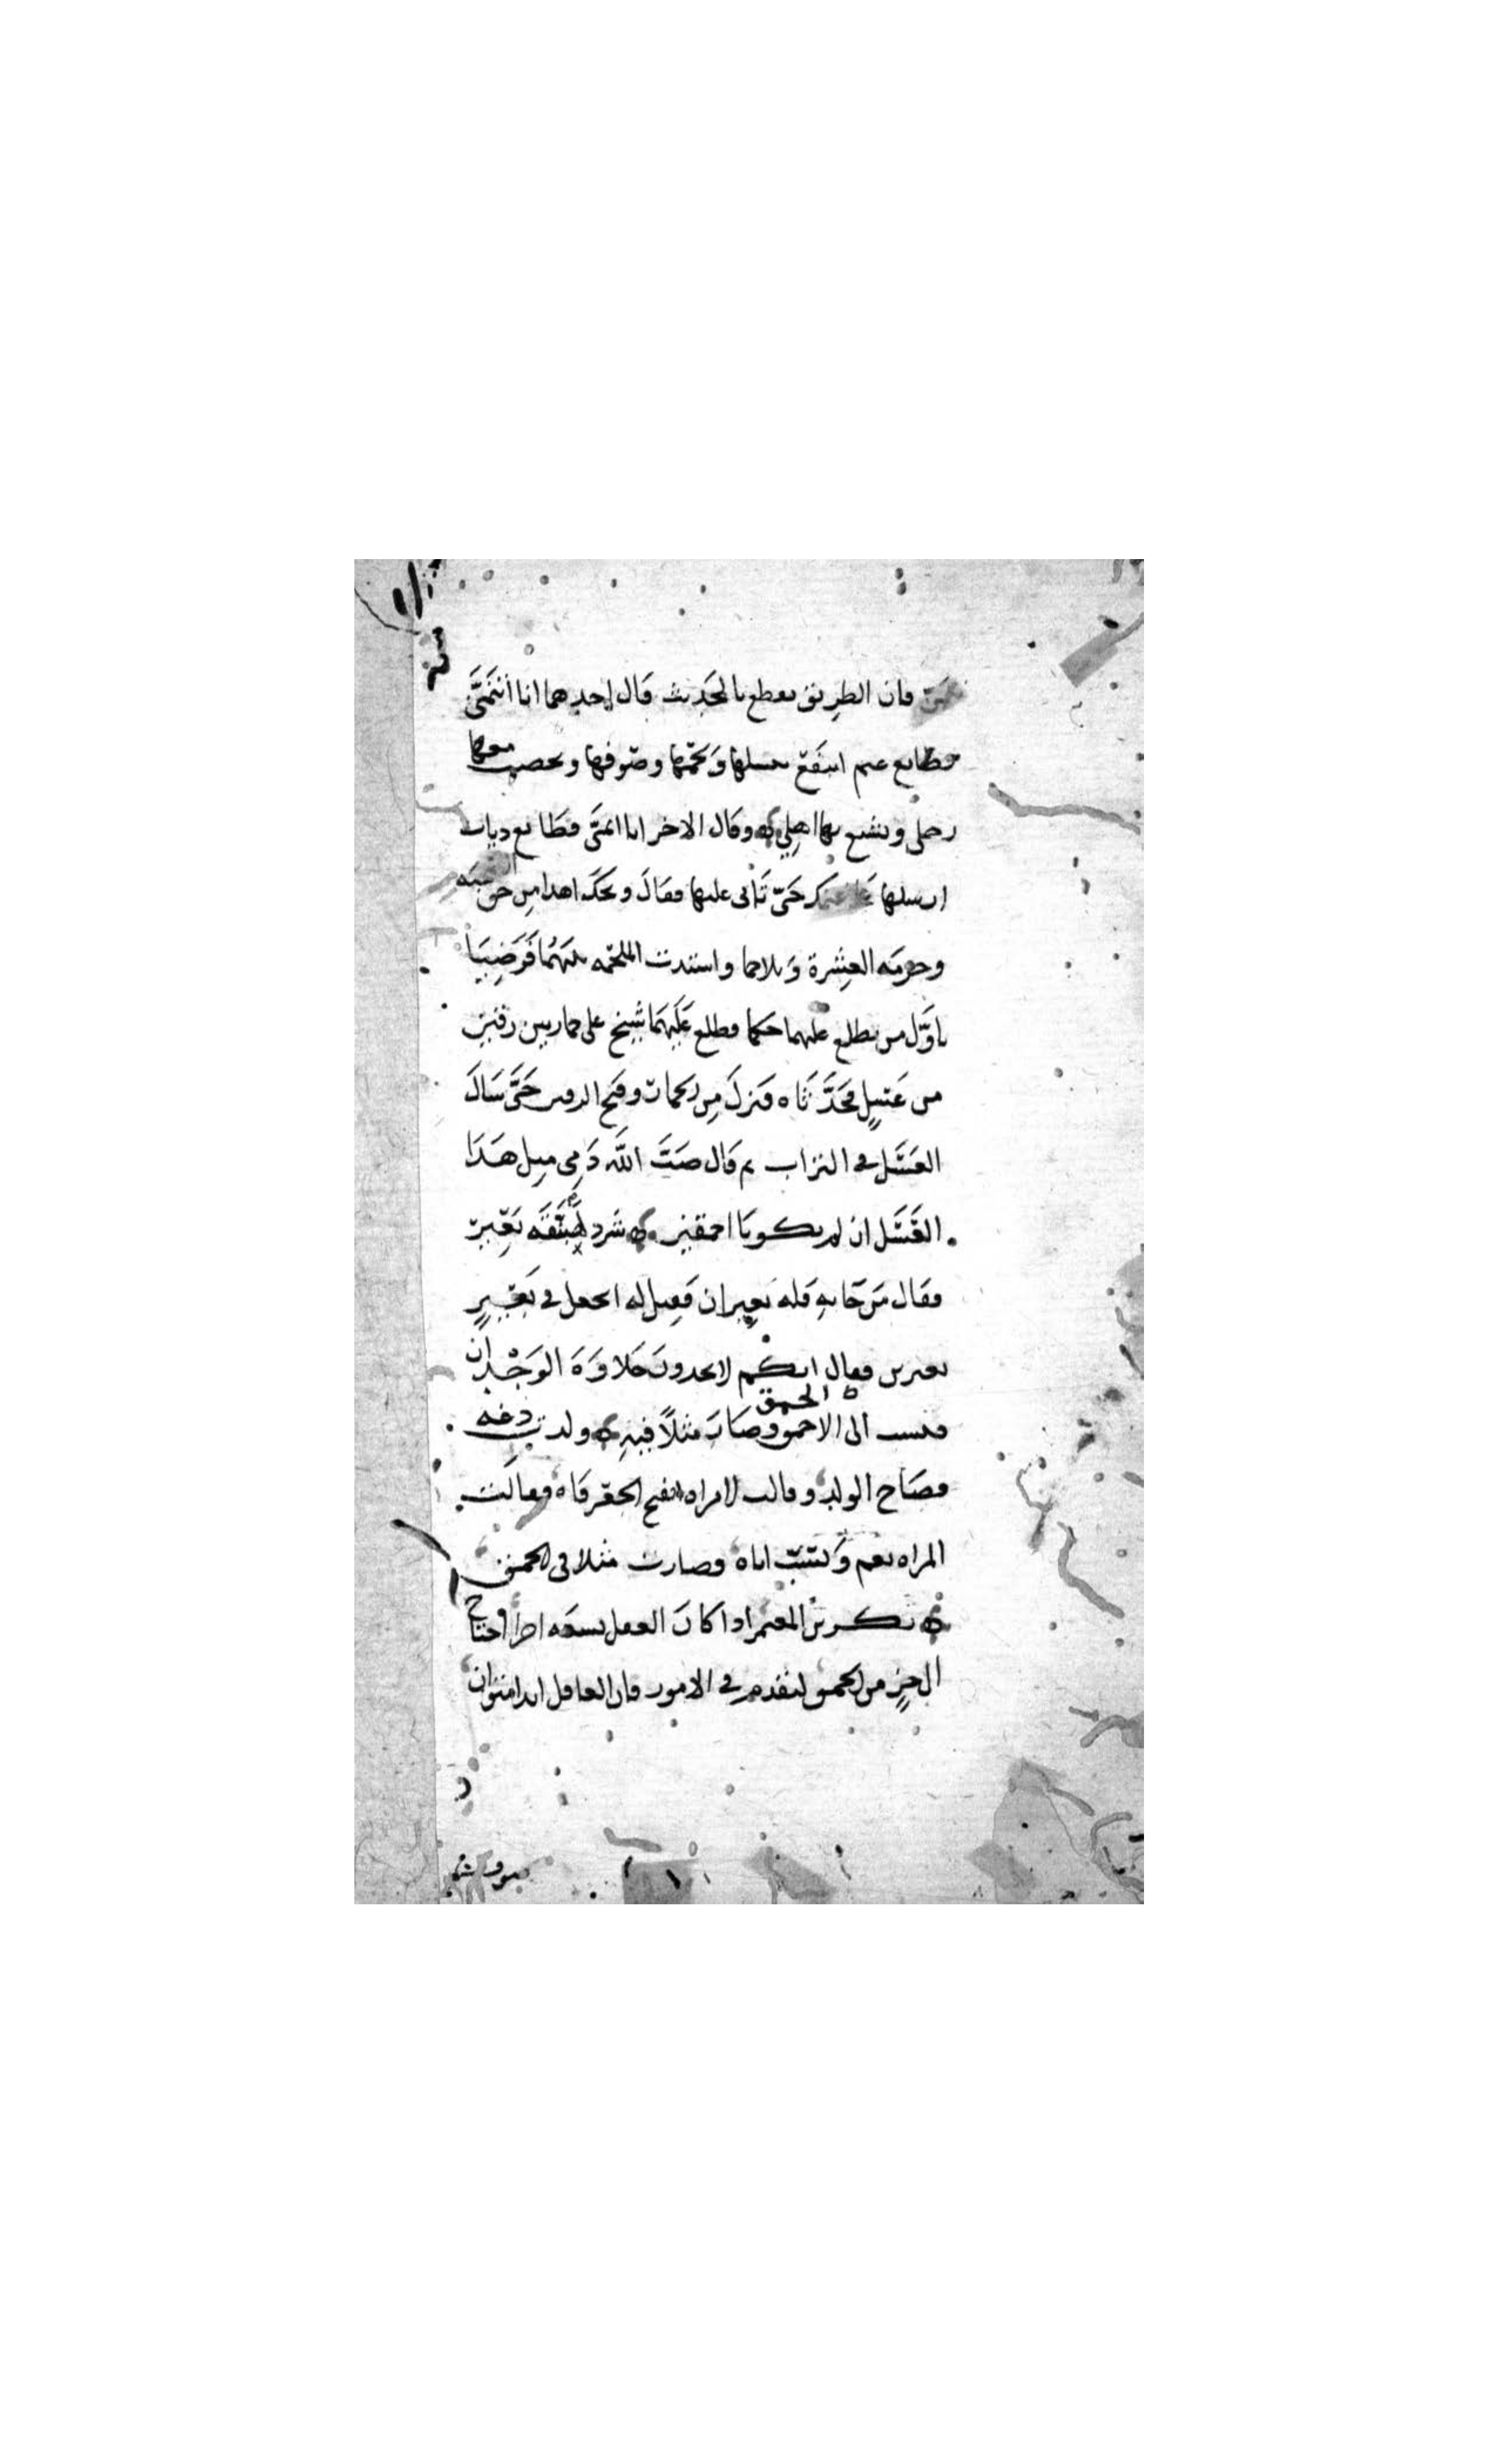 نتمن فان الطريق يقطع بالحديث قال احدهما انا أتمنَّى
قطايع غنم انتفع برسلها ولحمها وصوفها ويخصب معها
رحلي ويشبع بها اهلي وقال الاخر انا اتمنَّى قطايع ذياب
ارسلها على غنمك حتّى تاتى عليها فقال ويحك اهذا من حق الصحبه
وحرمه العِشرة وتلاحما واشتدت الملحمه بينهما فَرَضِيَا
باوَّل من يطلع عليهما حكما فطلع عليهما شيخ على حمار بين زقين
من عَسَلٍ فحدَّثاه فنزل من الحمار وفتح الزقين حتَّى سَالَ
العَسَل في التراب ثم قال صَبَّ اللَّه دَمِى مثل هَذا
العَسَل ان لم تكونا احمقين شرد لهبنّقه بَعير
فقال مَن جَا بهِ فله بعيران فقيل له اتجعل فى بَعيرٍ
بعيرين فقال انكم لا تجدون حَلاوَةَ الوَجْدان
فنسب الى الحمق وصَارَ مثلاً فيهِ ولدت دغه
فصَاح الولد وقالت لامراه ايفتح الجعر فاه فقالت
المراه نعم وَيسبّ اباه وصارت مثلا فى الحمق
بكر بن المعتمر اذا كان العقل تسعه اجزا احتاج
الى جزٍ من الحمق ليقدم في الامور فان العاقل ابدا متوانٍ